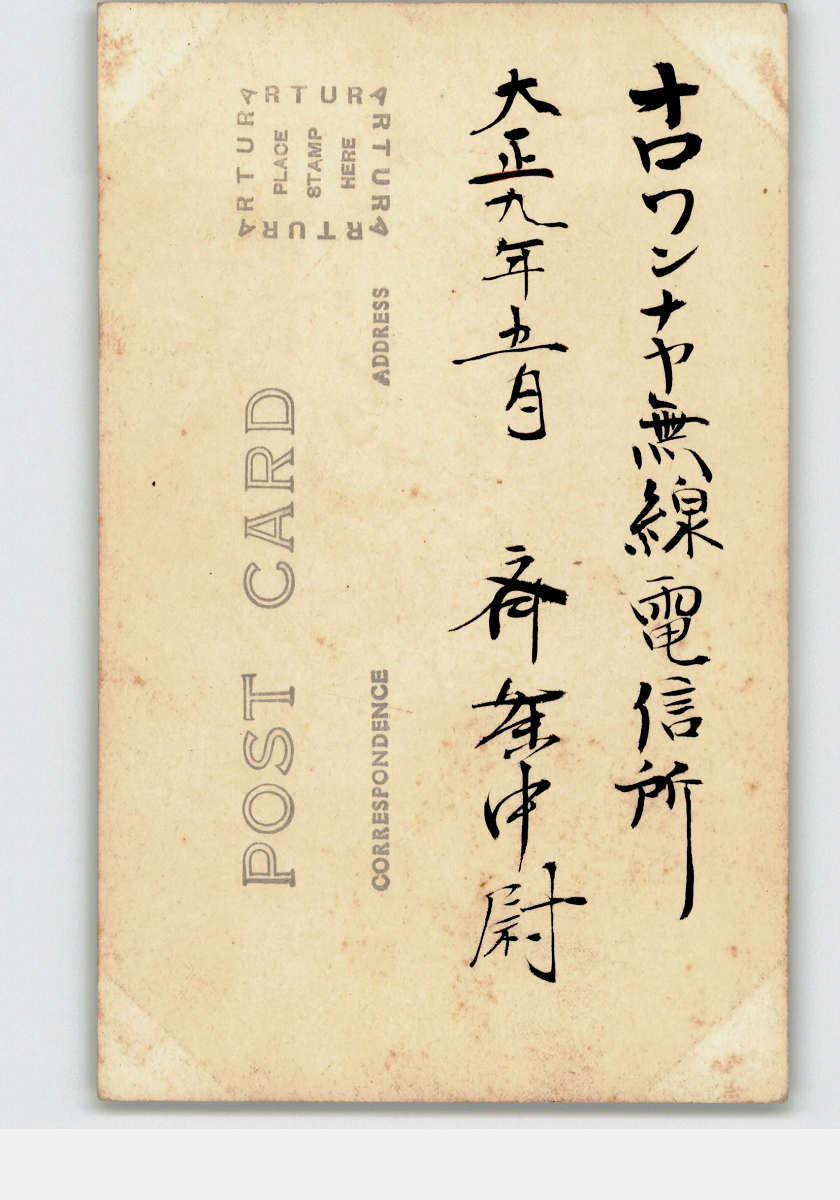 オロワンナヤ無線電信所
大正九年五月 斉藤中尉
ARTURA
ARTURA
ARTURA
ARTURA
PLACE
STAMP
HERE
POST CARD
CORRESPONDENCE
ADDRESS